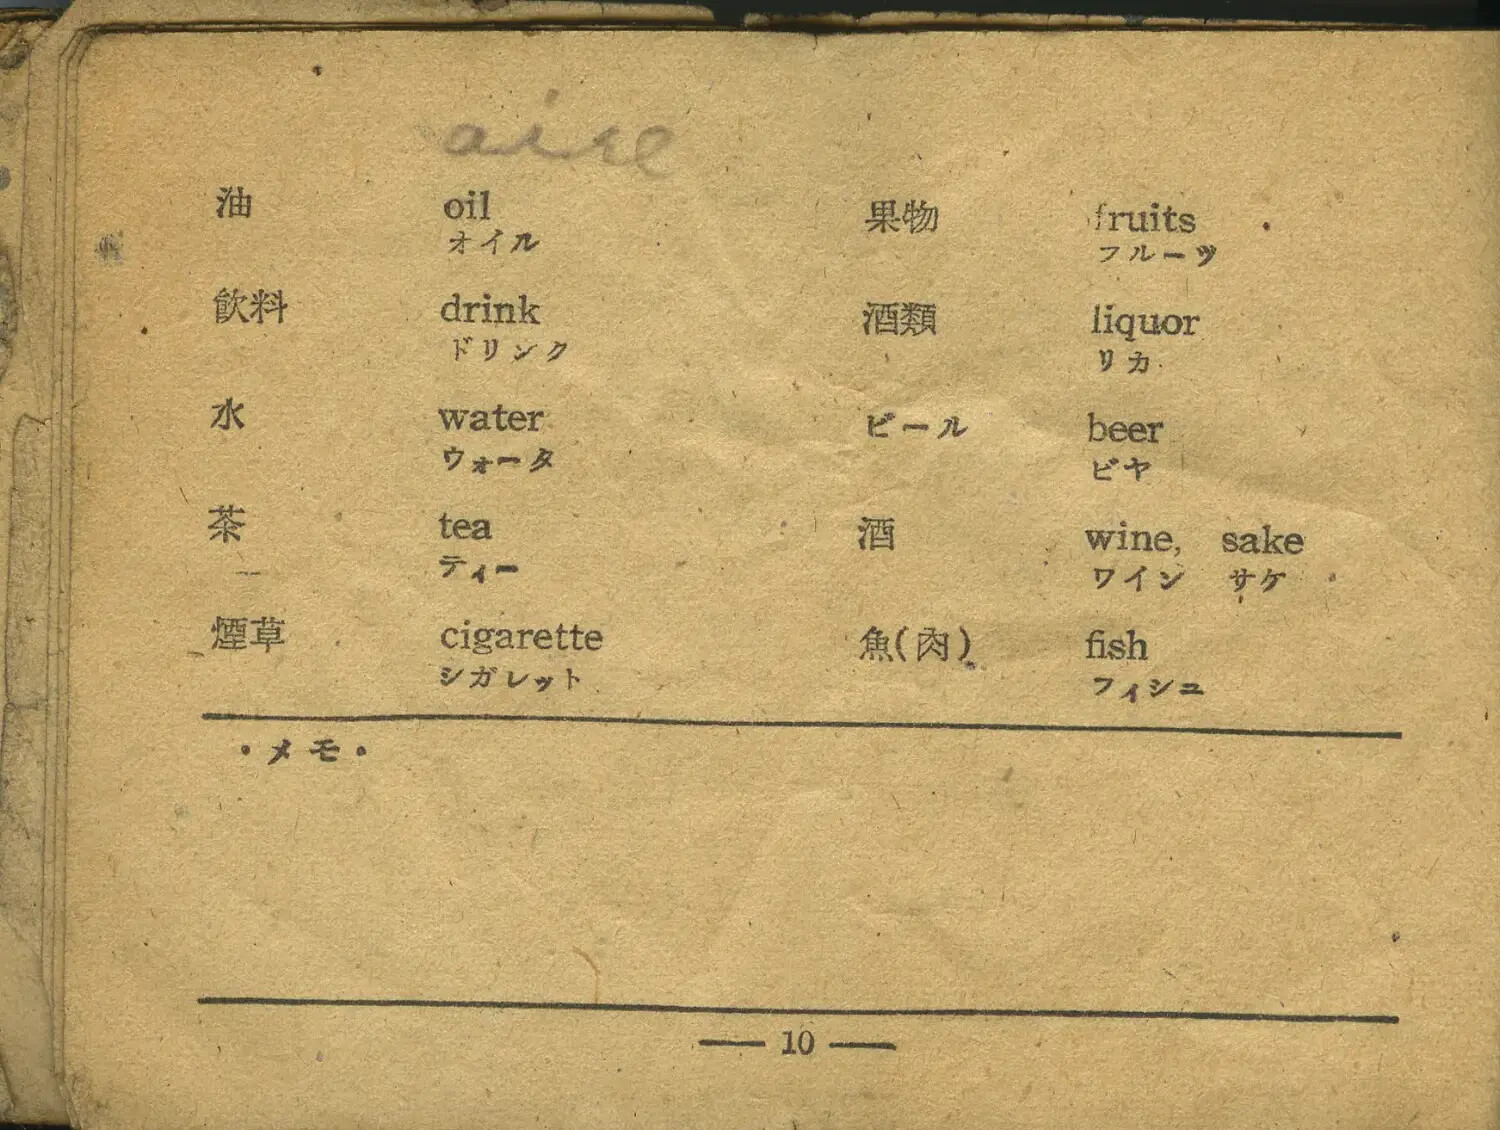 油 oil
オイル
飲料 drink
ドリンク
水 water
ウォータ
茶 tea
ティー
煙草 cigarette
シガレット
果物 fruits
フルーツ
酒類 liquor
リカ
ビール beer
ビヤ
酒 wine, sake
ワイン サケ
魚(肉) fish
フィシユ
・メモ・
— 10 —